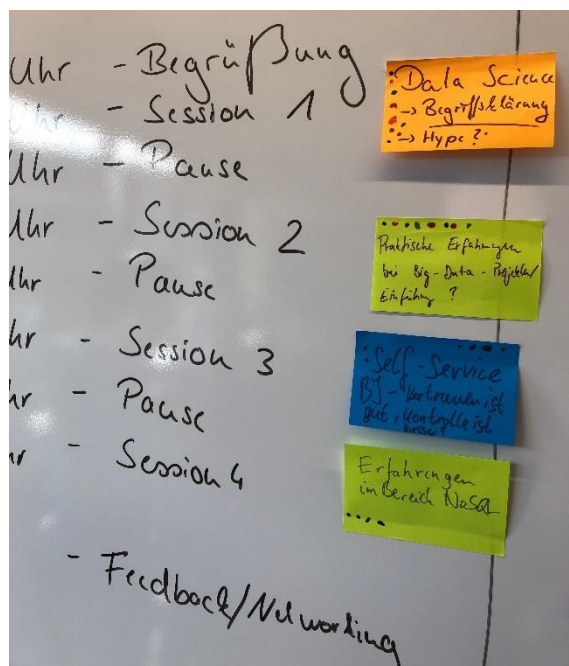 Uhr - Begrüßung
Uhr - Session 1
Uhr - Pause
Uhr - Session 2
Uhr - Pause
hr - Session 3
hr - Pause
hr - Session 4
- Feedback/Networking
Data Science
→ Begriffsklärung
→ Hype?
Praktische Erfahrungen
bei Big-Data-Projekten/
Einführung?
Self-Service
BI - Vertrauen ist
gut, Kontrolle ist
besser?
Erfahrungen
im Bereich NoSQL